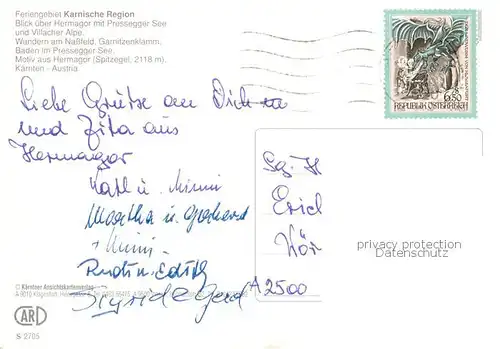 Feriengebiet Karnische Region
Blick über Hermagor mit Pressegger See
und Villacher Alpe.
Wandern am Naßfeld, Garnitzenklamm.
Baden im Pressegger See.
Motiv aus Hermagor (Spitzegel, 2118 m).
Kärnten - Austria.
6.50
REPUBLIK ÖSTERREICH
Liebe Grüße an Dich
und Zita aus
Hermagor
Kathl u. Mimmi
Martha u. Gerhard
+ Mimi
Rudi u. Edith
Sigrid e Gerd
Sg. H
Erich
Kör
A 2500
privacy protection
Datenschutz
© Kärntner Ansichtskartenverlag
ARD
S 2705